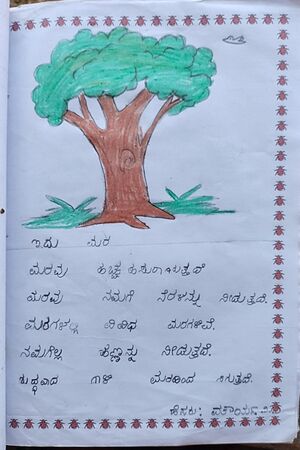 ಇದು ಮರ
ಮರವು ಹಚ್ಚ ಹಸುರಾಗಿರುತ್ತದೆ
ಮರವು ನಮಗೆ ನೆರಳನ್ನು ನೀಡುತ್ತದೆ.
ಮರಗಳಲ್ಲಿ ವಿವಿಧ ಮರಗಳಿವೆ.
ನಮಗೆಲ್ಲ ಹಣ್ಣನ್ನು ನೀಡುತ್ತದೆ.
ಶುದ್ಧವಾದ ಗಾಳಿ ಮರದಿಂದ ಸಿಗುತ್ತದೆ.
ಹೆಸರು: